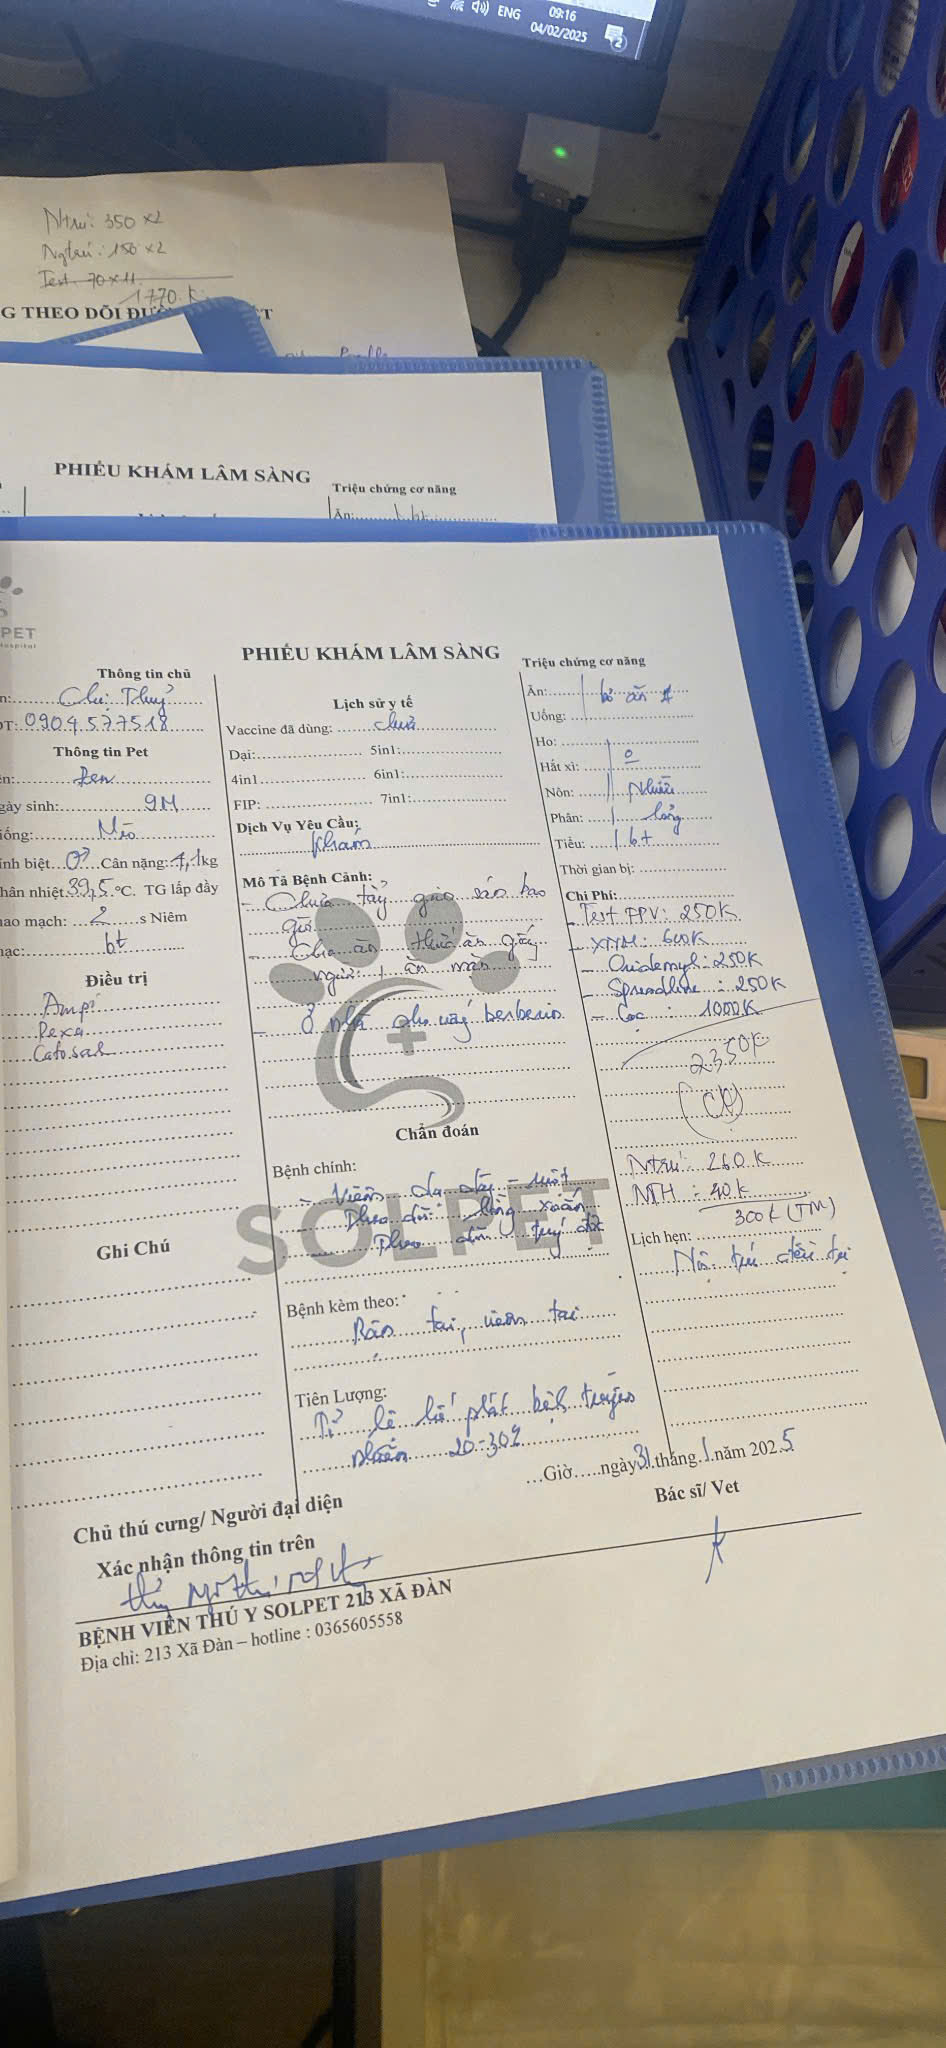 ENG
09:16
04/02/2025
2
Ntrú: 350 x2
Ngtrú: 150 x2
Test: 70 x 11
1770 K
G THEO DÕI ĐƯỜ
T
PHIẾU KHÁM LÂM SÀNG
Triệu chứng cơ năng
Ăn:
bt
PET
Hospital
PHIẾU KHÁM LÂM SÀNG
Thông tin chủ
n: Chị: Thuỷ
T: 0904577518
Thông tin Pet
n: Đen
gày sinh: 9M
iống: Mèo
ính biệt ♂ Cân nặng: 4,1kg
hân nhiệt 39,5 °C. TG lấp đầy
ao mạch: 2 s Niêm
ạc: bt
Điều trị
Ampi
Dexa
Catosal
Ghi Chú
Lịch sử y tế
Vaccine đã dùng: chưa
Dại: 5in1:
4in1 6in1:
FIP: 7in1:
Dịch Vụ Yêu Cầu:
Khám
Mô Tả Bệnh Cảnh:
- Chưa tẩy giun sán bao
giờ
- Cho ăn thức ăn giống
người, ăn mặn
- Ở nhà cho uống berberin
Chẩn đoán
Bệnh chính:
- Viêm dạ dày - ruột
Theo dõi: lồng xoắn
Theo dõi
Bệnh kèm theo:
Rận tai, viêm tai
Tiên Lượng:
Tỉ lệ phát bệnh truyền
nhiễm 20-30%
Triệu chứng cơ năng
Ăn: bỏ ăn
Uống:
Ho:
Hắt xì: 0
Nôn: Nhiều
Phân: lỏng
Tiểu: bt
Thời gian bị:
Chi Phí:
- Test FPV: 250K
- XNM: 600K
- Oridermyl: 250K
- Spreadline: 250K
- Cọc: 1000K
2350K
(CK)
Ntrú: 260K
NTH: 40k
300k (TM)
Lịch hẹn:
Nội trú điều trị
Giờ ngày 31 tháng 1 năm 2025
Bác sĩ/ Vet
Chủ thú cưng/ Người đại diện
Xác nhận thông tin trên
BỆNH VIỆN THÚ Y SOLPET 213 XÃ ĐÀN
Địa chỉ: 213 Xã Đàn – hotline : 0365605558
SOLPET